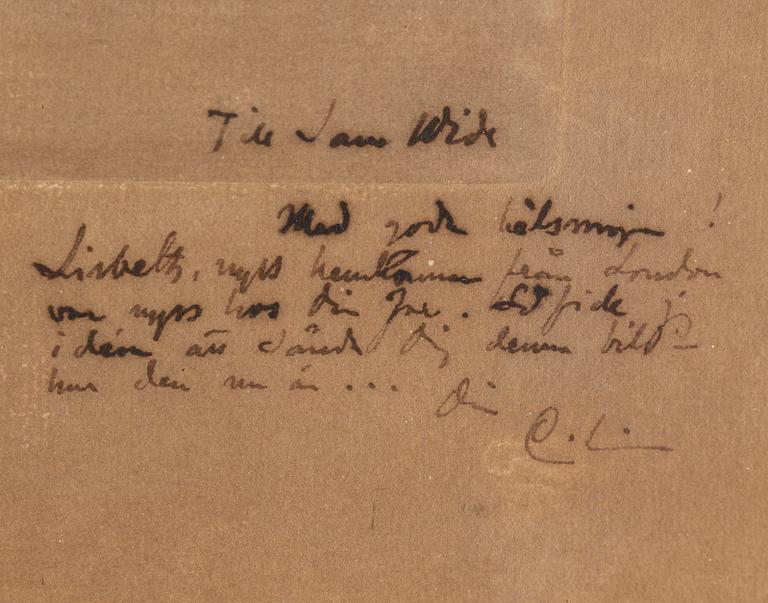 Till Sam Wide
Med goda hälsningar!
Lisbeth, nyss hemkommen från London
var nyss hos din far. Så fick j
idéen att sända dig denna bild–
hur den nu är...
din
C. L.